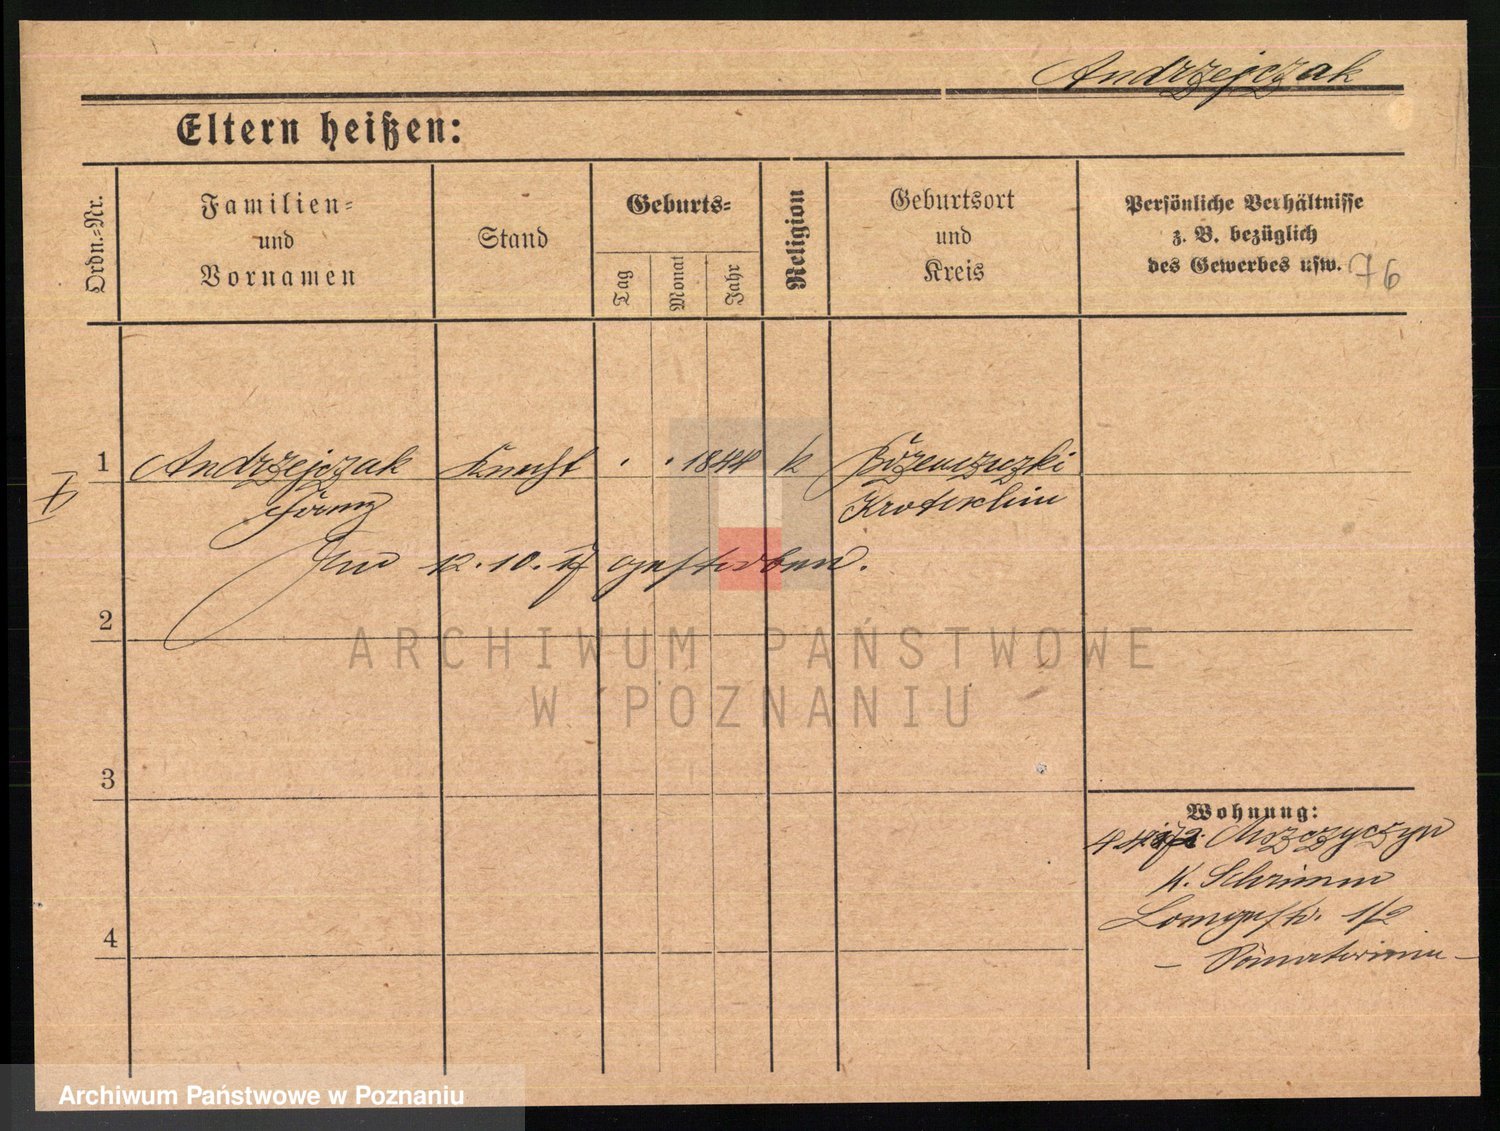 Andrzejczak
Eltern heißen:
Ordn.-Nr.
Familien-
und
Vornamen
Stand
Geburts-
Tag
Monat
Jahr
Religion
Geburtsort
und
Kreis
Persönliche Verhältnisse
z. B. bezüglich
des Gewerbes usw.
76
1
Andrzejczak Knecht . . 1844 k
Franz Krotoschin
Am 12.10.17 gestorben.
2
ARCHIWUM PAŃSTWOWE
W POZNANIU
3
4
Wohnung:
K. Schrimm
Langestr. 1/2
- Sanatorium -
Archiwum Państwowe w Poznaniu